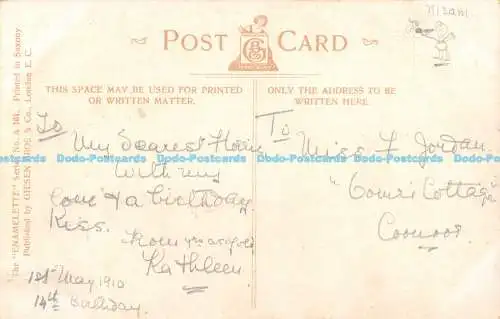 Nizam
POST CARD
THIS SPACE MAY BE USED FOR PRINTED
OR WRITTEN MATTER.
ONLY THE ADDRESS TO BE
WRITTEN HERE.
The "ENAMELETTE" Series No. A 164. Printed in Saxony
Published by GIESEN BROS & Co., London E. C.
To
My Dearest
With my
love & a birthday
Kiss.
from
Kathleen
1st May 1910
14th Birthday.
To
Miss F Jordan.
Cottage
Coonoor
Dodo-Postcards Dodo-Postcards Dodo-Postcards Dodo-Postcards Dodo-Postcards Dodo-Postcards